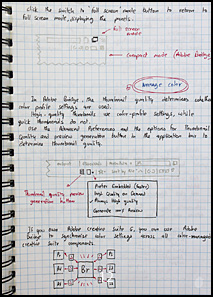 click the Switch to full screen mode button to return to
full screen mode, displaying the panels.
full screen
compact mode (Adobe Bridge)
Manage color
In Adobe Bridge, the thumbnail quality determines whether
color profile settings are used.
High-quality thumbnails use color-profile settings, while
quick thumbnails do not.
Use the Advanced Preferences and the options for Thumbnail
Quality and preview generation button in the application bar to
determine thumbnail quality.
Thumbnail quality preview
generation button
Prefer Embedded (Faster)
High Quality on Demand
Always High Quality
Generate
If you own Adobe Creative Suite 6, you can use Adobe
Bridge to synchronize color settings across all color-managed
creative suite components.
Br